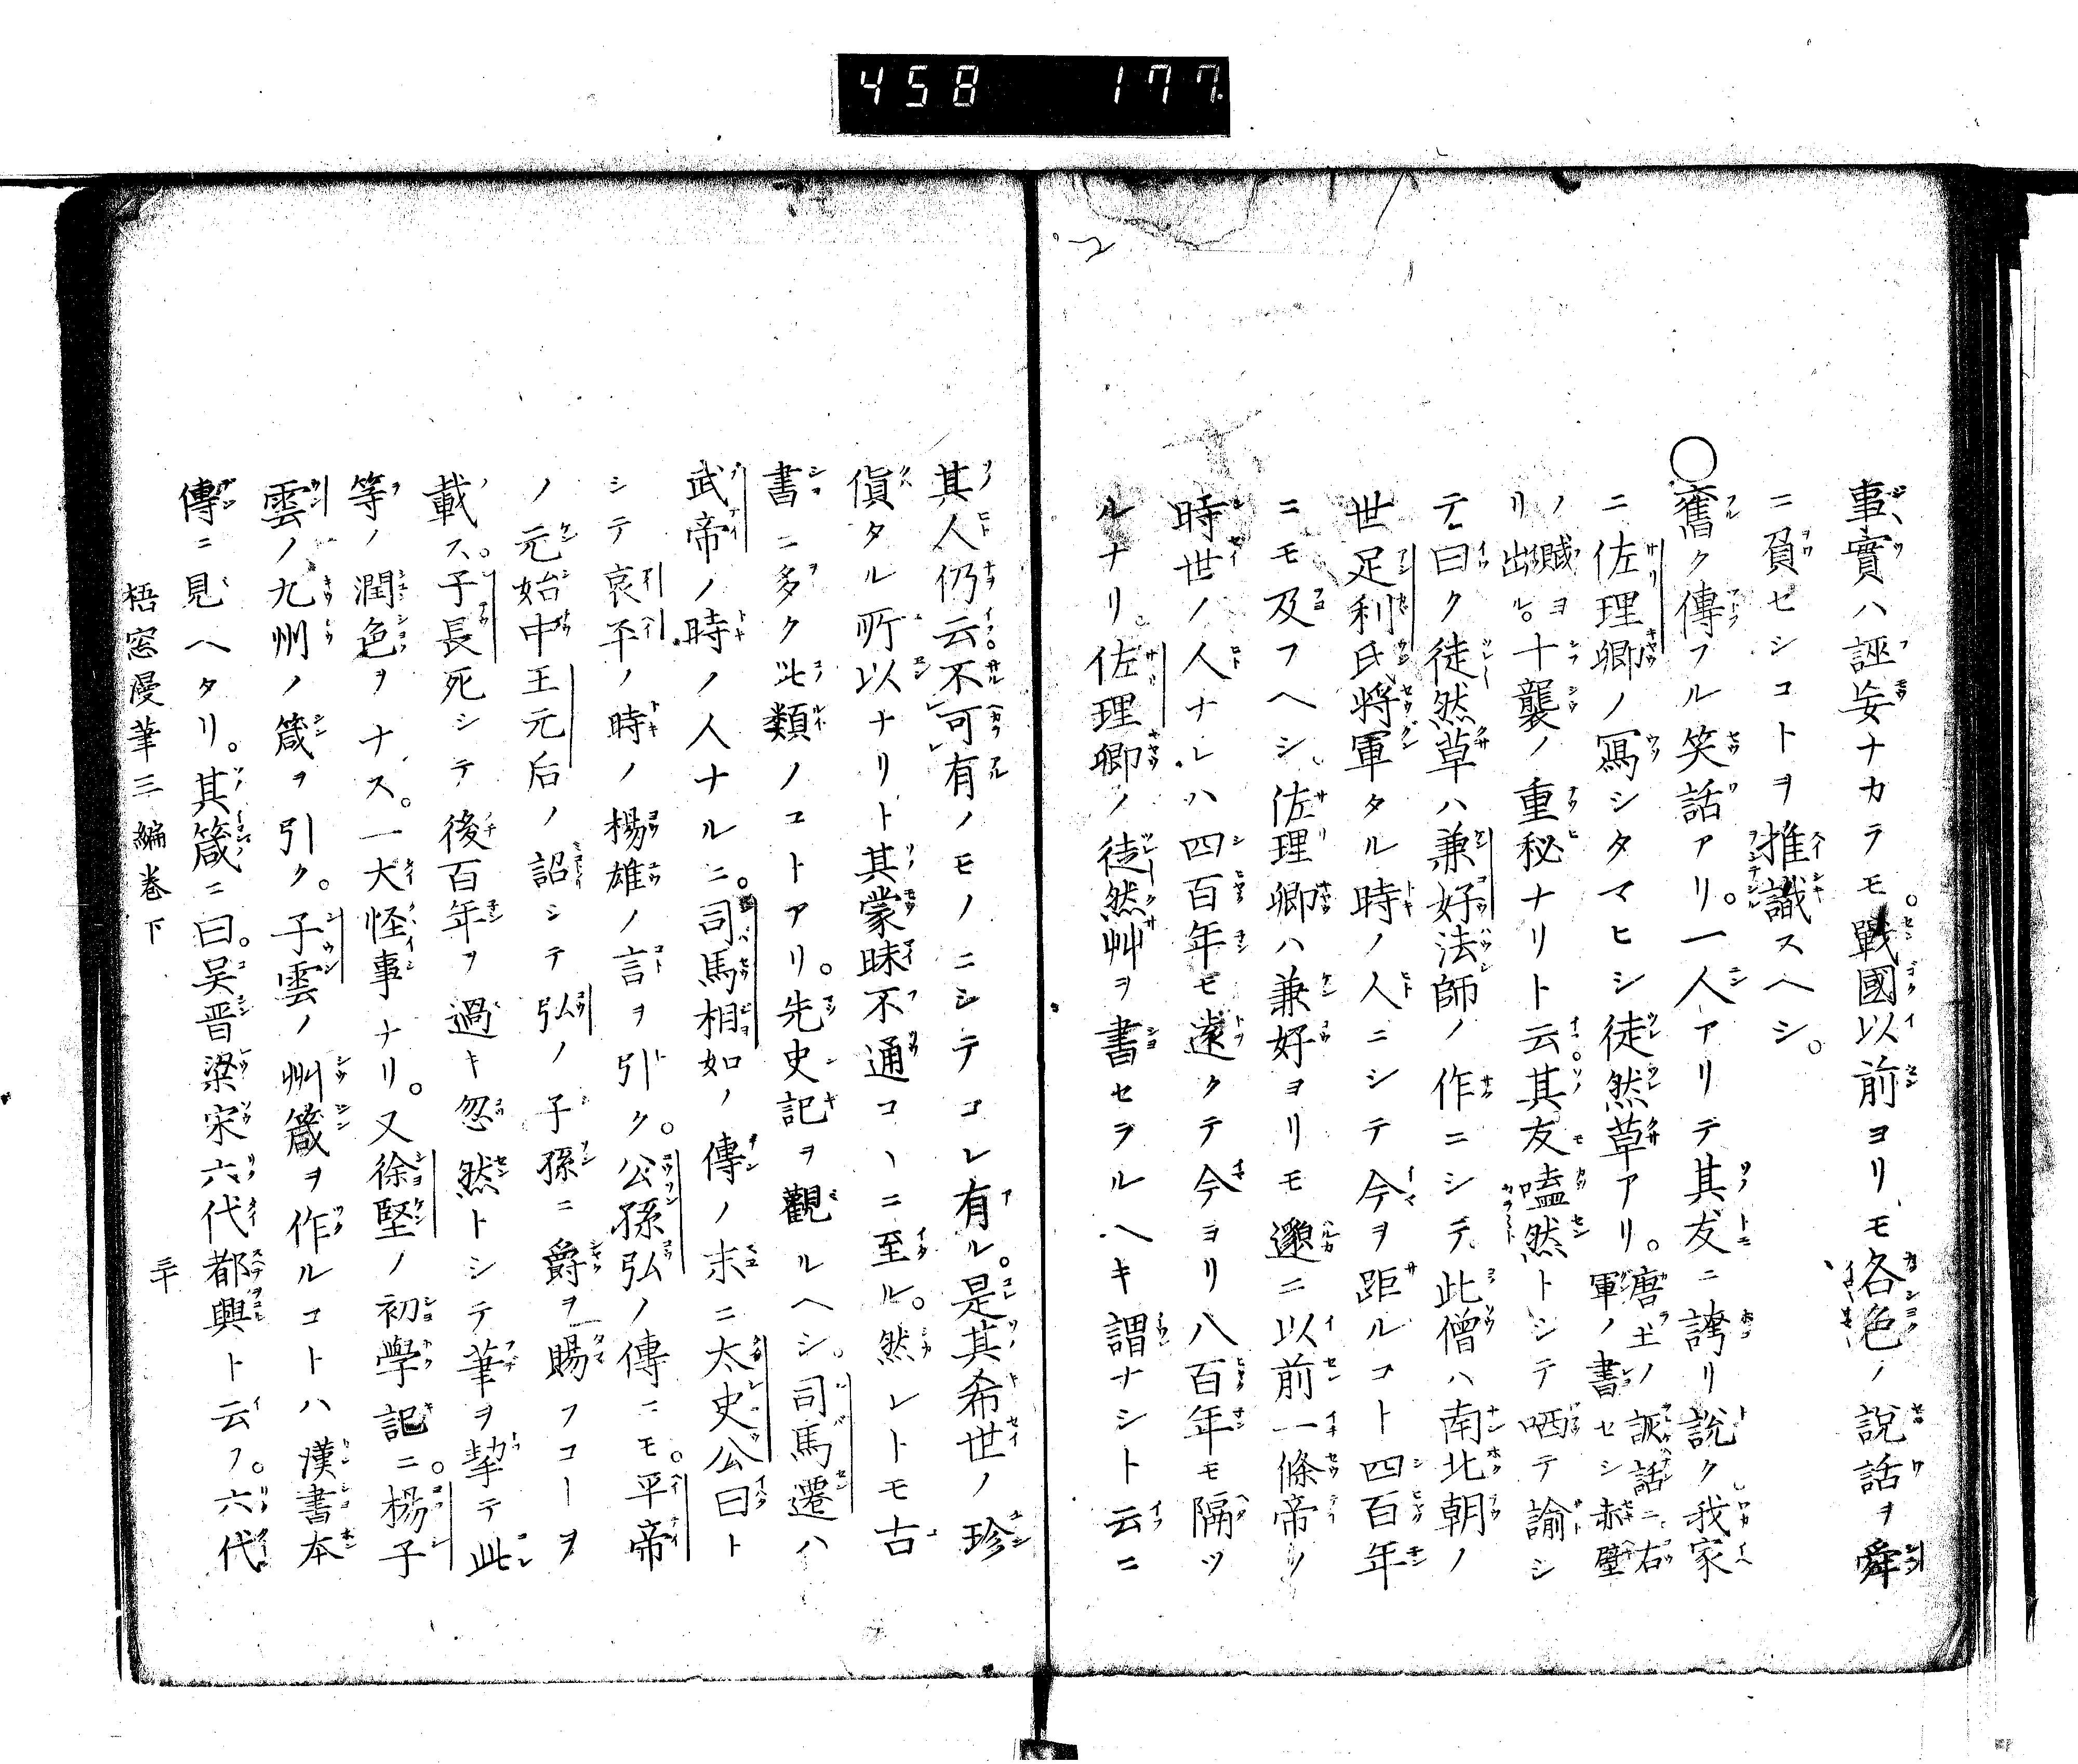 458 177.
事實ハ誣妄ナカラモ。戰國以前ヨリモ各色ノ說話ヲ舜
ニ負セシコトヲ推識スヘシ。
○舊ク傳フル笑話アリ。一人アリテ其友ニ誇リ說ク。我家
ニ佐理卿ノ寫シタマヒシ徒然草アリ。唐土ノ詼話ニ右
軍ノ書セシ赤壁
ノ賦ヲ
出ル。
リ十襲ノ重秘ナリト云。其友嗑然トシテ哂テ諭シ
テ曰ク徒然草ハ兼好法師ノ作ニシテ此僧ハ南北朝ノ
世足利氏將軍タル時ノ人ニシテ今ヲ距ルコト四百年
ニモ及フヘシ。佐理卿ハ兼好ヨリモ邈ニ以前一條帝ノ
時世ノ人ナレハ四百年モ遠クテ今ヨリ八百年モ隔ツ
ルナリ。佐理卿ノ徒然艸ヲ書セラルヘキ謂ナシト云ニ
其人仍云。不可有ノモノニシテコレ有ル。是其希世ノ珍
貨タル所以ナリト其蒙昧不通コヽニ至ル。然レトモ古
書ニ多ク此類ノコトアリ。先史記ヲ觀ルヘシ。司馬遷ハ
武帝ノ時ノ人ナルニ。司馬相如ノ傳ノ末ニ太史公曰ト
シテ哀平ノ時ノ楊雄ノ言ヲ引ク。公孫弘ノ傳ニモ。平帝
ノ元始中王元后ノ詔シテ弘ノ子孫ニ爵ヲ賜フコーヲ
載ス。子長死シテ後百年ヲ過キ忽然トシテ筆ヲ挈テ此
等ノ潤色ヲナス。一大怪事ナリ。又徐堅ノ初學記ニ。楊子
雲ノ九州ノ箴ヲ引ク。子雲ノ州箴ヲ作ルコトハ漢書本
傳ニ見ヘタリ。其箴ニ曰。吴晋梁宋六代都興ト云フ。六代
梧窓漫筆三編卷下